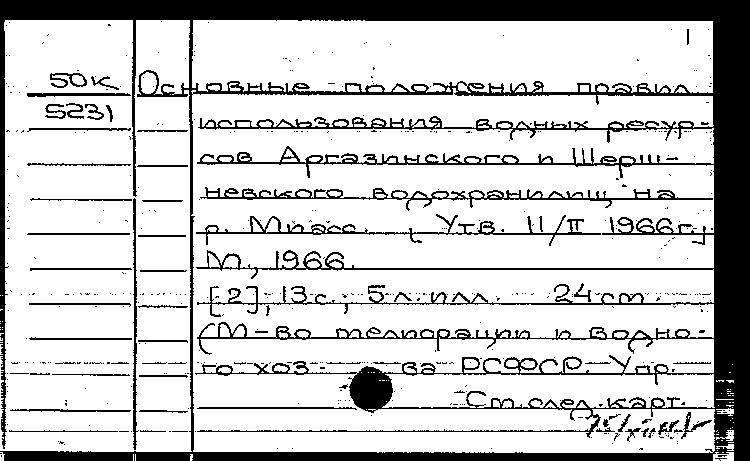 1
50к Основные положения правил
5231 использования водных ресур-
сов Аргазинского и Шерш-
невского водохранилищ на
р. Миасс. [Утв. 11/II 1966г.]
М., 1966.
[2], 13 с.; 5 л. илл. 24 см.
(М-во мелиорации и водно-
го хоз-ва РСФСР. Упр.
См. след. карт.